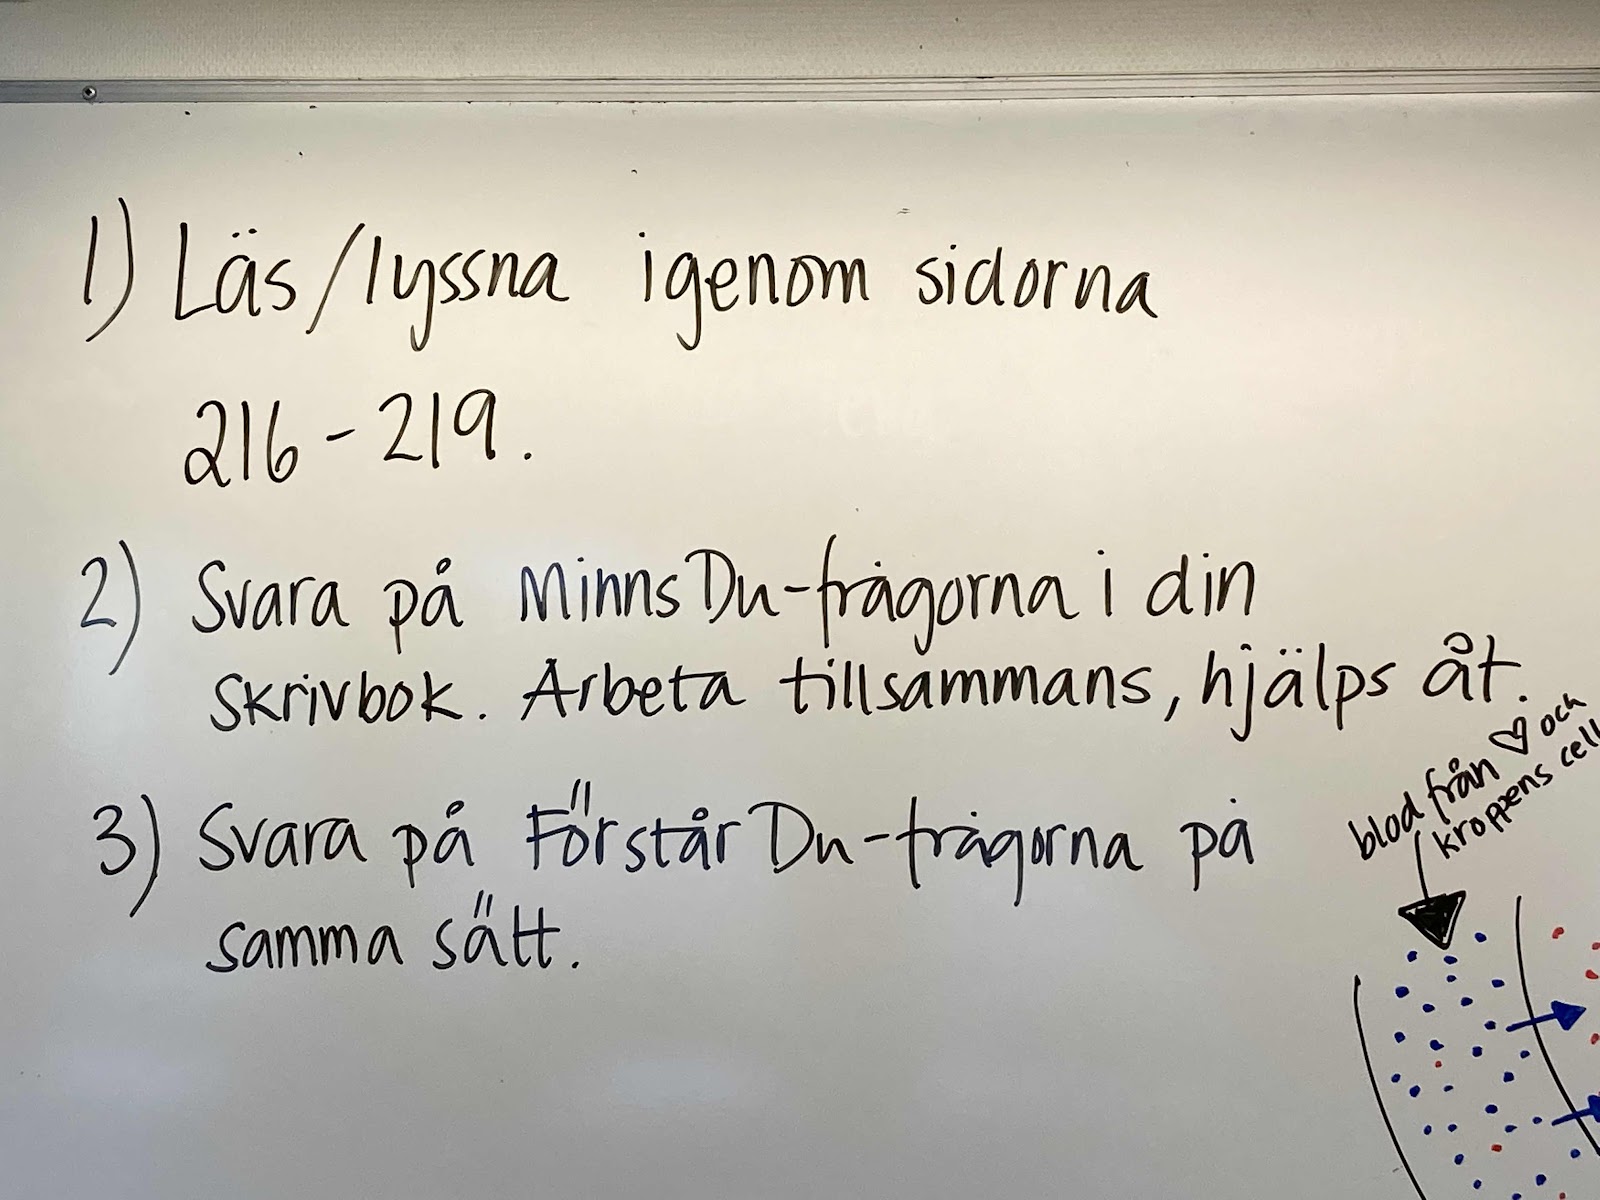 1) Läs/lyssna igenom sidorna
216-219.
2) Svara på MinnsDu-frågorna i din
skrivbok. Arbeta tillsammans, hjälps åt.
3) Svara på FörstårDu-frågorna på
samma sätt.
blod från ♡ och
kroppens cell